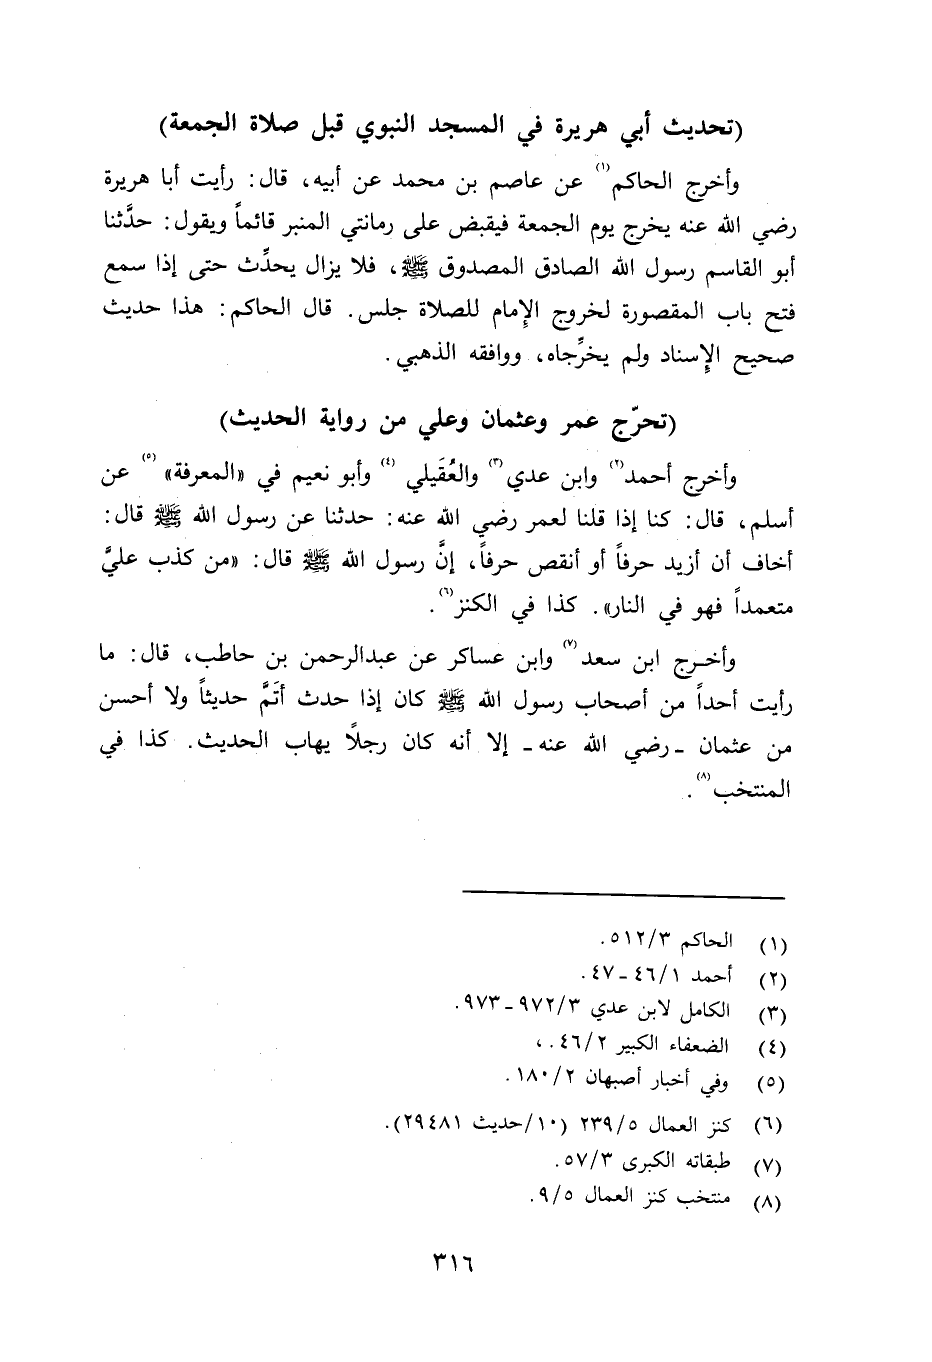 (تحديث أبي هريرة في المسجد النبوي قبل صلاة الجمعة)
وأخرج الحاكم(١) عن عاصم بن محمد عن أبيه، قال: رأيت أبا هريرة
رضي الله عنه يخرج يوم الجمعة فيقبض على رمانتي المنبر قائماً ويقول: حدَّثنا
أبو القاسم رسول الله الصادق المصدوق ﷺ، فلا يزال يحدِّث حتى إذا سمع
فتح باب المقصورة لخروج الإمام للصلاة جلس. قال الحاكم: هذا حديث
صحيح الإسناد ولم يخرِّجاه، ووافقه الذهبي.
(تحرّج عمر وعثمان وعلي من رواية الحديث)
وأخرج أحمد(٢) وابن عدي(٣) والعُقَيلي(٤) وأبو نعيم في «المعرفة»(٥) عن
أسلم، قال: كنا إذا قلنا لعمر رضي الله عنه: حدثنا عن رسول الله ﷺ قال:
أخاف أن أزيد حرفاً أو أنقص حرفاً، إنَّ رسول الله ﷺ قال: «من كذب عليَّ
متعمداً فهو في النار». كذا في الكنز(٦).
وأخرج ابن سعد(٧) وابن عساكر عن عبدالرحمن بن حاطب، قال: ما
رأيت أحداً من أصحاب رسول الله ﷺ كان إذا حدث أتَمَّ حديثاً ولا أحسن
من عثمان ـ رضي الله عنه ـ إلا أنه كان رجلاً يهاب الحديث. كذا في
المنتخب(٨).
(١) الحاكم ٥١٢/٣.
(٢) أحمد ٤٦/١ ـ ٤٧.
(٣) الكامل لابن عدي ٩٧٢/٣ ـ ٩٧٣.
(٤) الضعفاء الكبير ٤٦/٢. ،
(٥) وفي أخبار أصبهان ١٨٠/٢.
(٦) كنز العمال ٢٣٩/٥ (١٠/حديث ٢٩٤٨١).
(٧) طبقاته الكبرى ٥٧/٣.
(٨) منتخب كنز العمال ٩/٥.
٣١٦